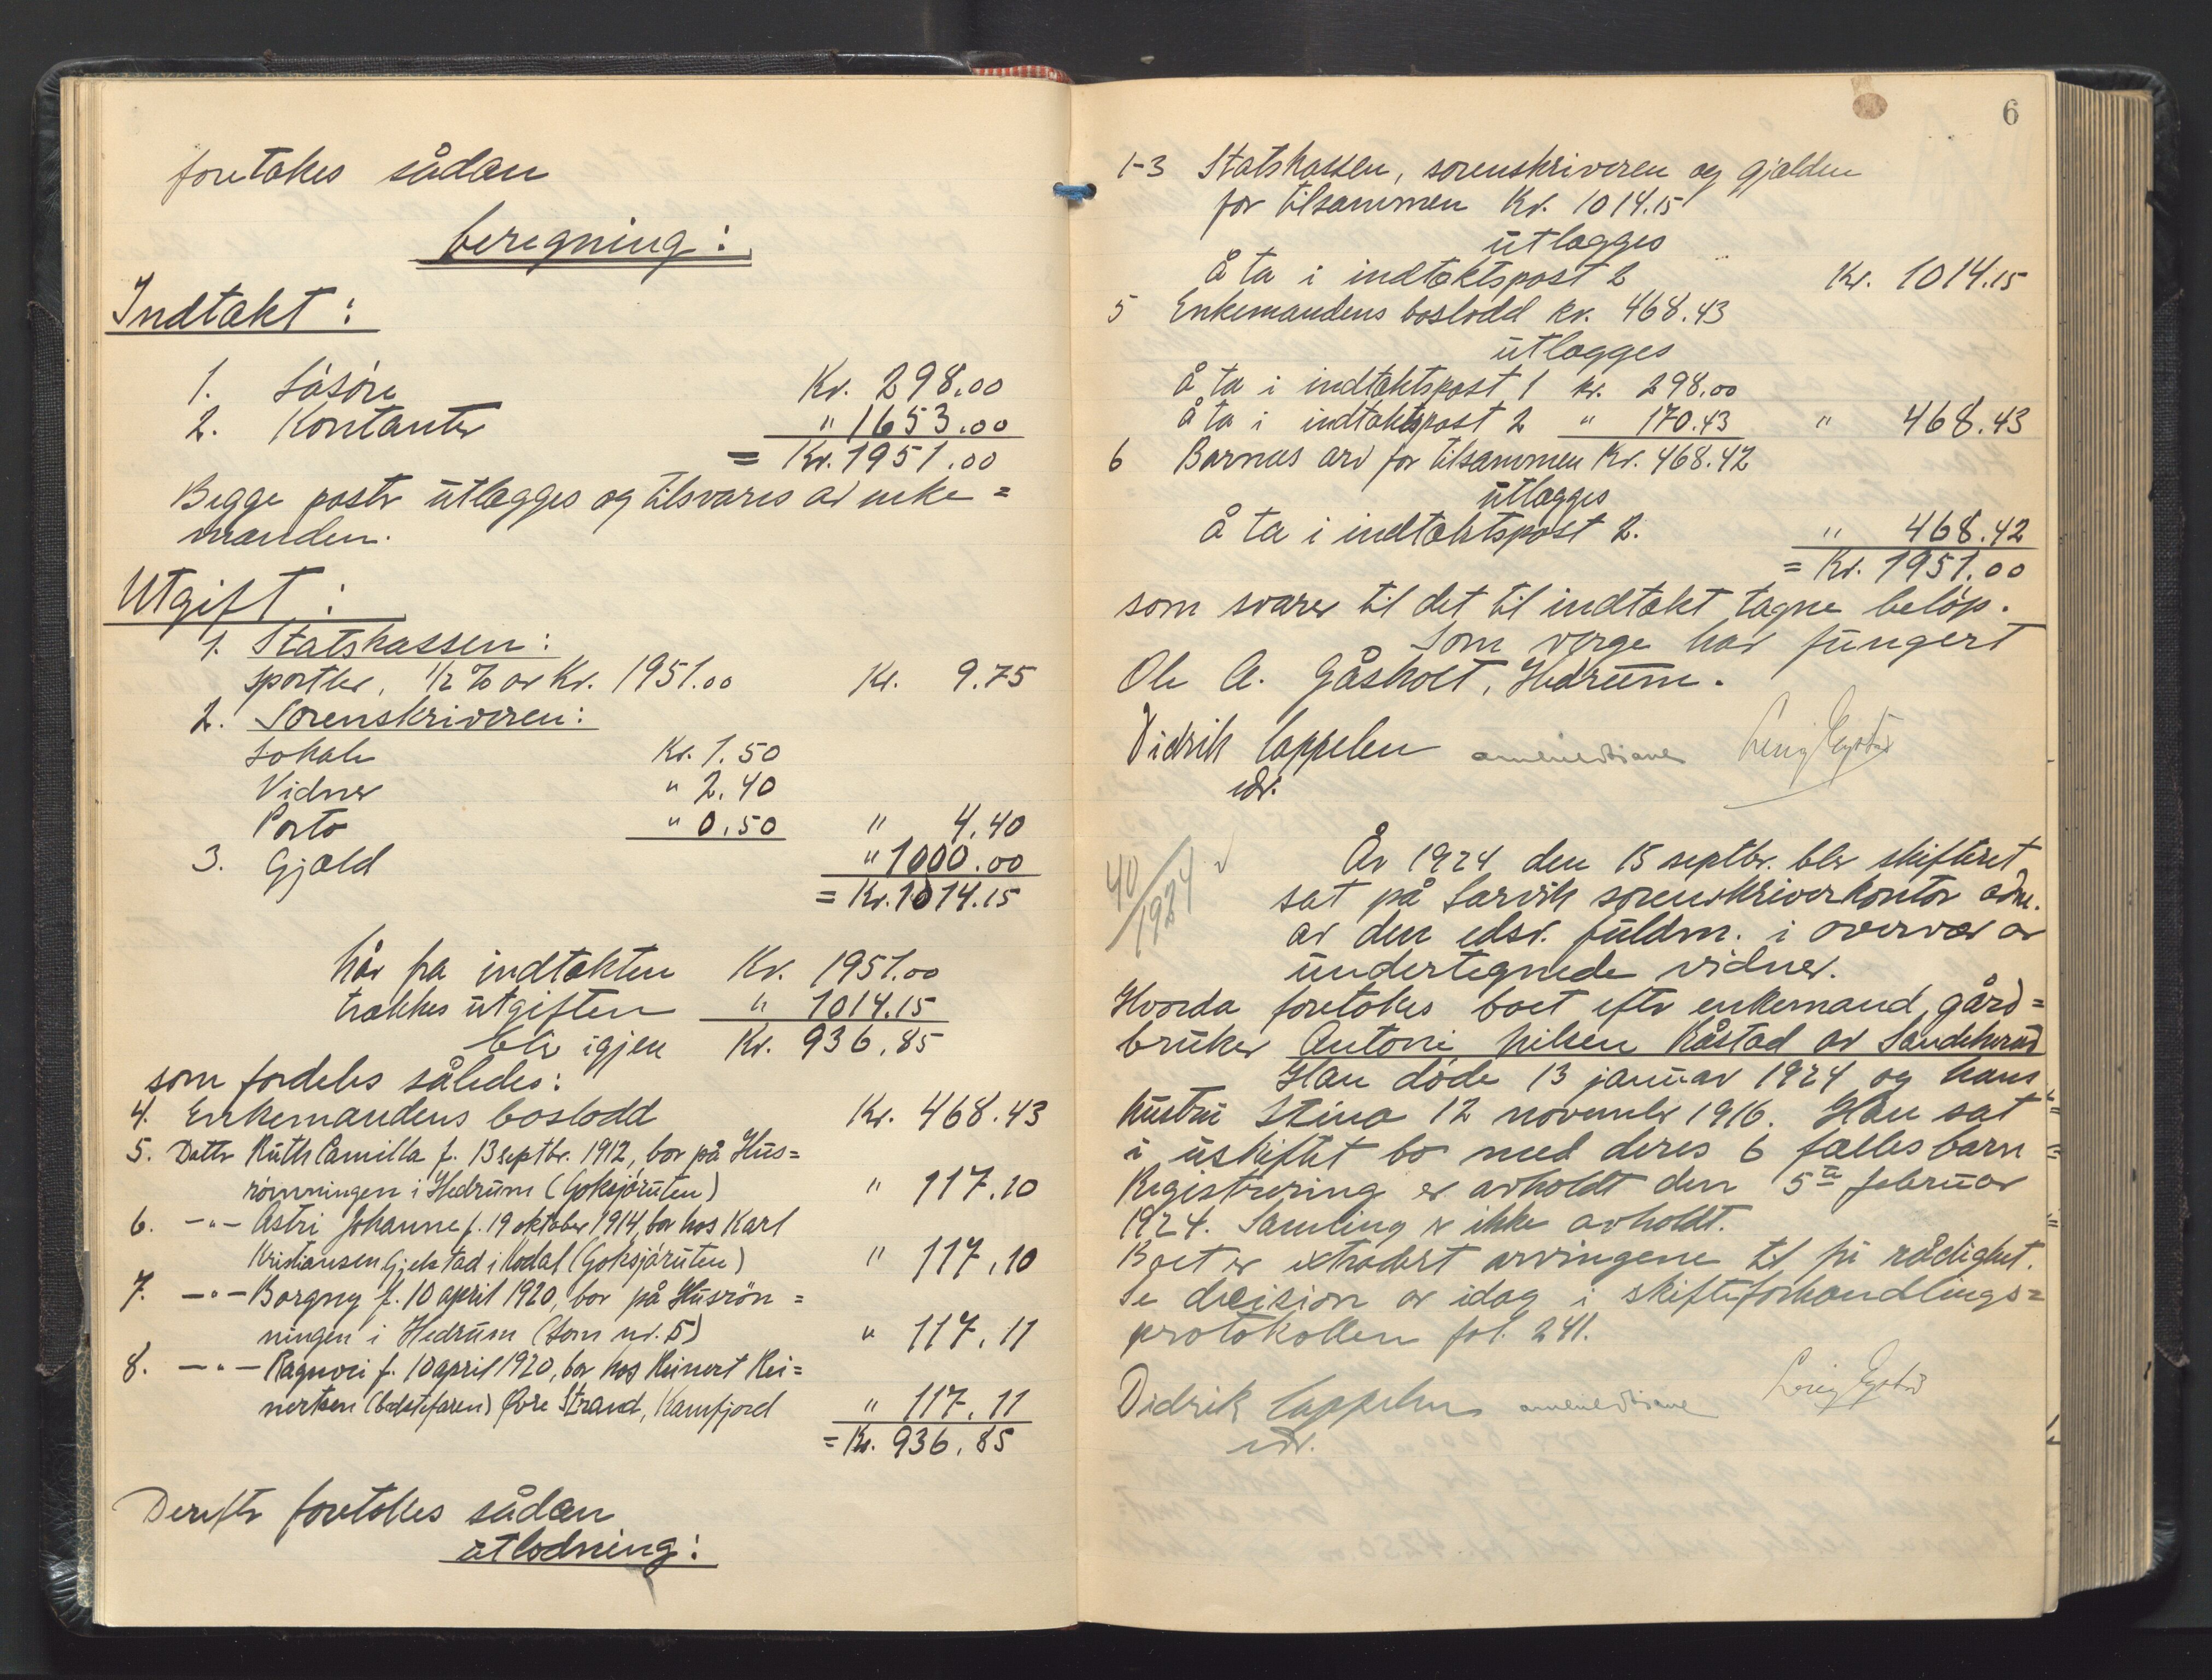 foretakes sådan
beregning:
Indtækt:
1. Løsøre Kr. 298.00
2. Kontanter " 1653.00
= Kr. 1951.00
Begge poster utlægges og tilsvares av enke=
manden.
Utgift:
1. Statskassen:
sportler, 1/2 % av Kr. 1951.00 Kr. 9.75
2. Sorenskriveren:
Lokale Kr. 1.50
Vidner " 2.40
Porto " 0.50 " 4.40
3. Gjæld " 1000.00
= Kr. 1014.15
Når fra indtækten Kr. 1951.00
trækkes utgiften " 1014.15
blir igjen Kr. 936.85
som fordeles således:
4. Enkemandens boslodd Kr. 468.43
5. Datter Ruth Camilla f. 13 septbr. 1912, bor på Hus=
rømningen i Hedrum (Goksjøruten) " 117.10
6. -"- Astri Johanne f. 19 oktober 1914, bor hos Karl
Kristiansen Gjelstad i Kodal (Goksjøruten) " 117.10
7. -"- Borgny f. 10 april 1920, bor på Husrøn=
ningen i Hedrum (som nr. 5) " 117.11
8. -"- Ragnvi f. 10 april 1920, bor hos Reinert Rei=
nertsen (bedstefaren) Øvre Strand, Kamfjord " 117.11
= Kr. 936.85
Derefter foretakes sådan
utlodning:
6
1-3 Statskassen, sorenskriveren og gjælden
for tilsammen Kr. 1014.15
utlægges
å ta i indtæktspost 2 Kr. 1014.15
5 Enkemandens boslodd kr. 468.43
utlægges
å ta i indtæktspost 1 kr. 298.00
å ta i indtæktspost 2 " 170.43 " 468.43
6 Barnas arv for tilsammen Kr. 468.42
utlægges
å ta i indtæktspost 2. " 468.42
= Kr. 1951.00
som svarer til det til indtækt tagne beløp.
Som verge har fungert
Ole A. Gåsholt, Hedrum.
Didrik Cappelen
edsv.
40/1924
År 1924 den 15 septbr. blev skifteret
sat på Larvik sorenskriverkontor adm.
av den edsv. fuldm. i overvær av
undertegnede vidner.
Hvorda foretokes boet efter enkemand, gård=
bruker Antoni Nilsen Råstad av Sandeherad
Han døde 13 januar 1924 og hans
hustru Stina 12 november 1916. Han sat
i uskiftet bo med deres 6 fællesbarn
Registrering er avholdt den 5te februar
1924. Samling er ikke avholdt.
Boet er extradert arvingene til fri rådighet.
Se decision av idag i skifteforhandlings=
protokollen fol. 241.
Didrik Cappelen
edsv.